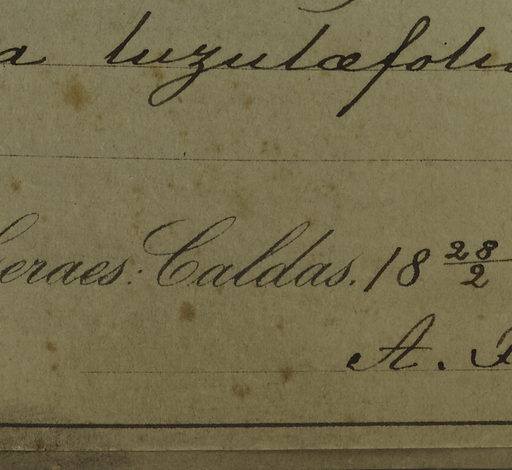 a luzulæfoli
eraes: Caldas. 18 28/2
A.